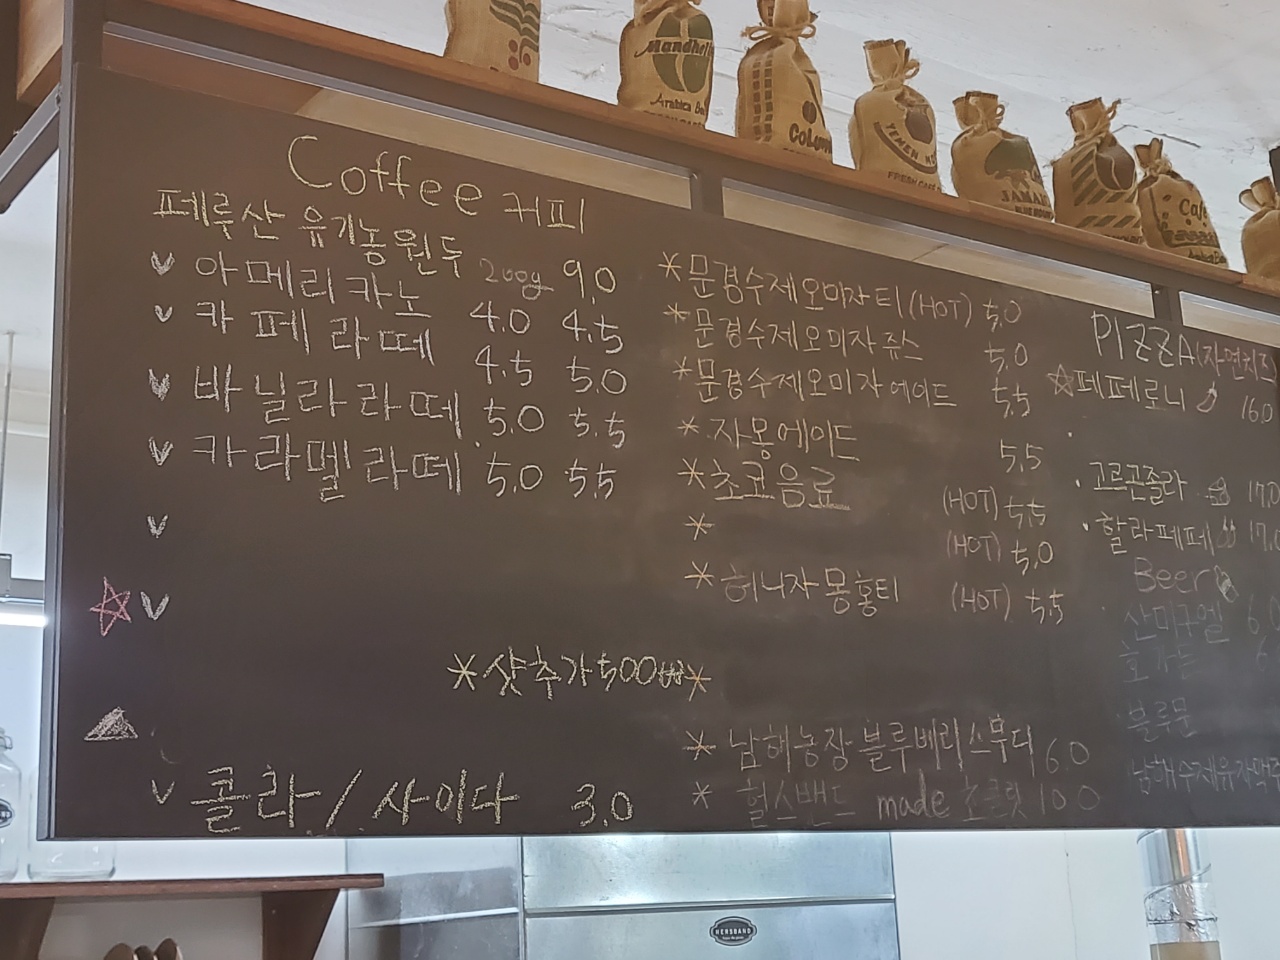 Mandheli
Arabica Be
COLOM
YEMEN MO
FRESH CAFE
JAMAI
Cafe
Arabica Be
Coffee 커피
페루산 유기농원두 200g 9.0
V 아메리카노 4.0 4.5
V 카페라떼 4.5 5.0
V 바닐라라떼 5.0 5.5
V 카라멜라떼 5.0 5.5
V
V
*샷추가 500₩
V 콜라/사이다 3.0
*문경수제오미자티(HOT) 5.0
*문경수제오미자쥬스 5.0
*문경수제오미자에이드 5.5
* 자몽에이드 5.5
*초코음료 (HOT) 5.5
* (HOT) 5.0
* 허니자몽홍티 (HOT) 5.5
*
* 남해농장블루베리스무디 6.0
* 헐스밴드 made 초콜릿 10.0
PIZZA(자연치즈
☆페페로니 16.0
· 고르곤졸라 17.0
· 할라페페 17.0
Beer
산미구엘 6.0
호가든 6.
블루문
남해수제유자맥주
HERSBAND